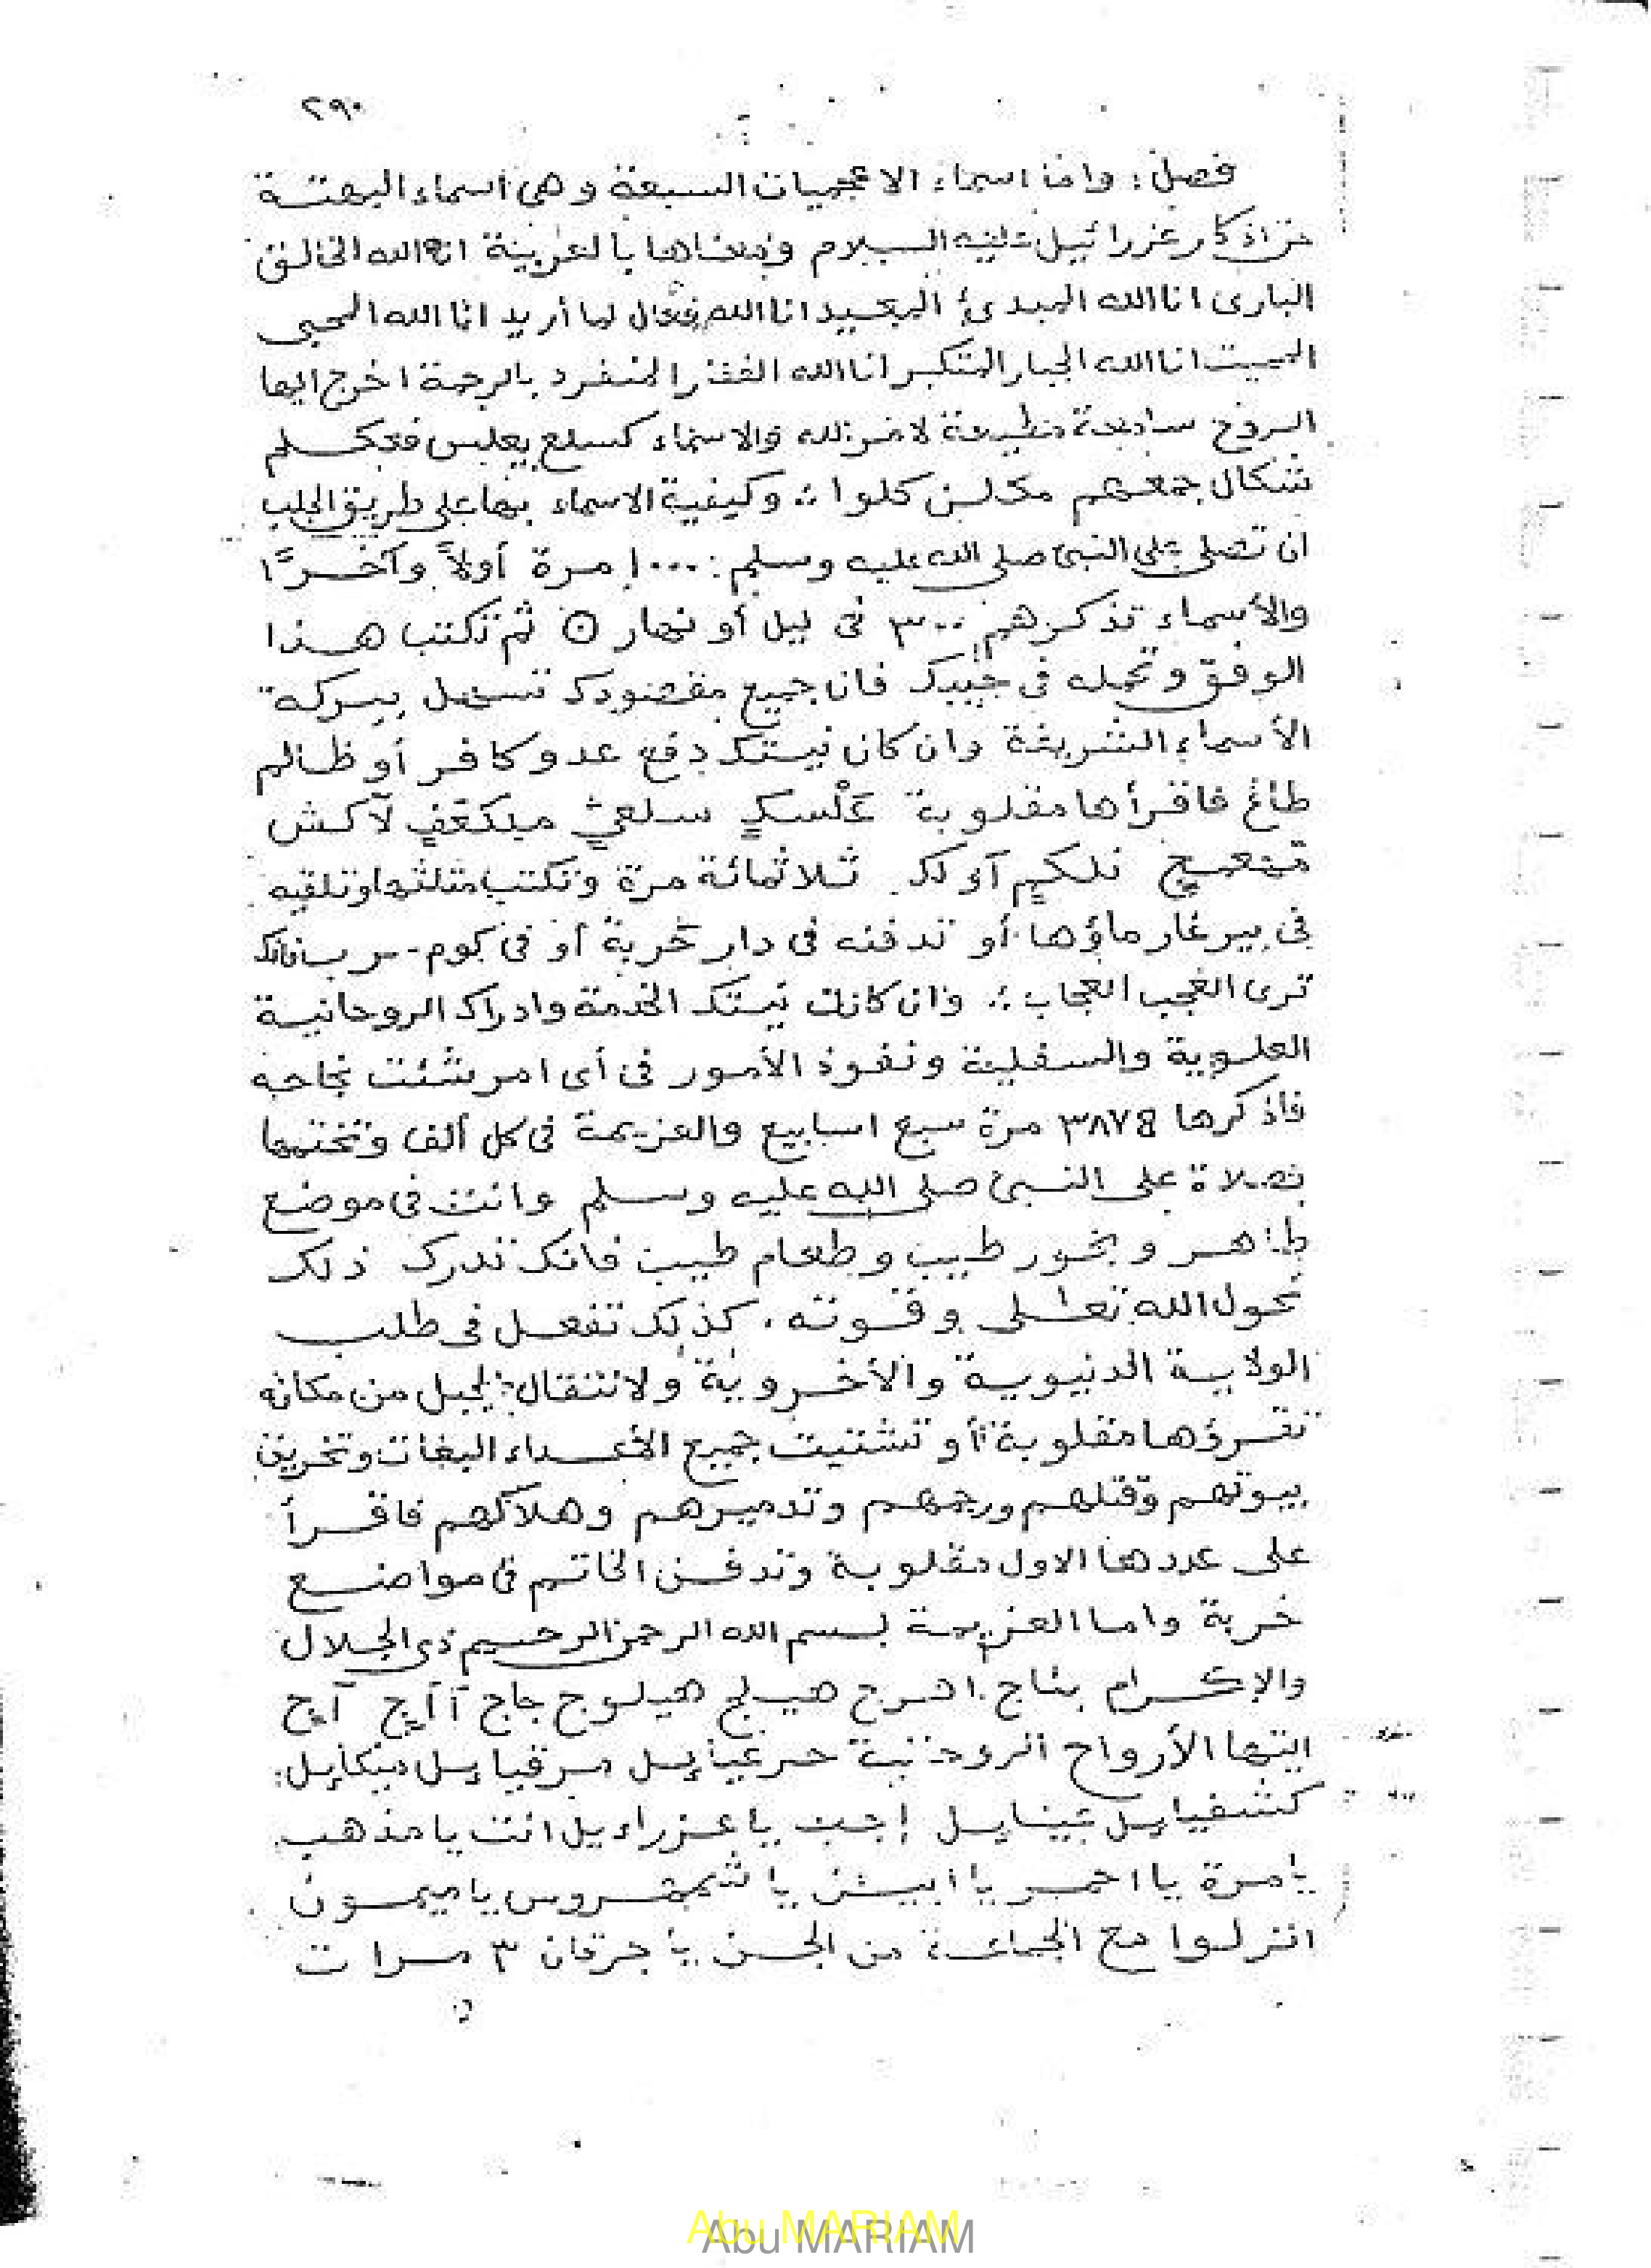 ٢٩٠
فصل: واما اسماء الاعجميات السبعة وهى اسماء البهتة
من اذكار عزرائيل عليه السلام ومعناها بالعربية انا الله الخالق
البارى انا الله المبدئ المعيد انا الله فعال لما أريد انا الله المحيى
المميت انا الله الجبار المتكبر انا الله المنفرد بالرحمة اخرج ايها
الروح سامعة مطيعة لامر الله والاسماء كسلع يعلس فعكلم
شكال جمعهم كلوا ؛ وكيفية الاسماء بها على طريق الجلب
ان تصلى على النبى صلى الله عليه وسلم : ١٠٠٠ مرة أولاً وآخرًا
والأسماء تذكرهم ٣٠٠ فى ليل أو نهار ⊙ ثم تكتب هذا
الوفق وتحمله فى جيبك فان جميع مقصودك تسهل ببركة
الأسماء الشريفة وان كان نيتك دفع عدو كافر أو ظالم
طاغ فاقرأها مقلوبة عَلْسكٍ سلعيٍ ملكعَفٍ لآكش
آولك ثلاثمائة مرة وتكتب مثلثها وتلقيه
فى بير غار ماؤها أو تدفنه فى دار خربة أو فى كوم فانك
ترى العجب العجاب ؛ وان كانت نيتك الخدمة وادراك الروحانية
العلوية والسفلية ونفوذ الأمور فى أى امر شئت نجاحه
فاذكرها مرة سبع اسابيع والعزيمة فى كل ألف وتختمها
بصلاة على النبى صلى الله عليه وسلم وانت فى موضع
طاهر وبخور طيب وطعام طيب فانك تدرك ذلك
بحول الله تعالى وقوته . كذلك تفعل فى طلب
الولاية الدنيوية والأخروية ولانتقال جبل من مكانه
تقرؤها مقلوبة أو تشتيت جميع الأعداء البغات وتخريب
بيوتهم وقتلهم ورجمهم وتدميرهم وهلاكهم فاقرأ
على عددها الاول مقلوبة وتدفن الخاتم فى مواضع
خربة واما العزيمة بسم الله الرحمن الرحيم ذى الجلال
والإكرام بتاج اهرج هيلج هيلوج جاج آأج آج
ايتها الأرواح الروحانية حرعيايل مرقيايل ميكايل
كشفيايل عينايل إجب يا عزراءيل انت يا مذهب
يا مرة يا احمر يا ابيض يا شمهروس يا ميمون
انزلوا مع من الجن يا جرقان ٣ مرات
Abu MARIAM
Abu MARIAM